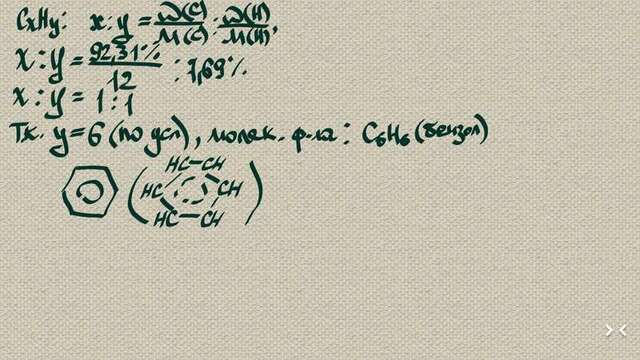 CxHy: x : y = ω(C)/M(C) : ω(H)/M(H),
x : y = 92,31%/12 : 7,69%
x : y = 1 : 1
Т.к. y = 6 (по усл), молек. ф-ла: C₆H₆ (бензол)
HC–CH
HC CH
HC–CH